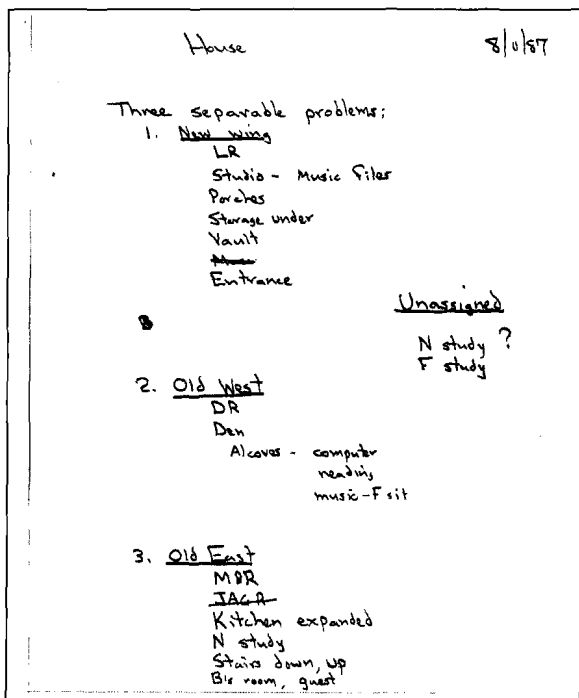 House 8/11/87
Three separable problems:
1. New wing
LR
Studio - Music Files
Porches
Storage under
Vault
Entrance
Unassigned
N study ?
F study
2. Old West
DR
Den
Alcoves - computer
reading
music - F sit
3. Old East
MBR
JACR
Kitchen expanded
N study
Stairs down, up
B's room, guest